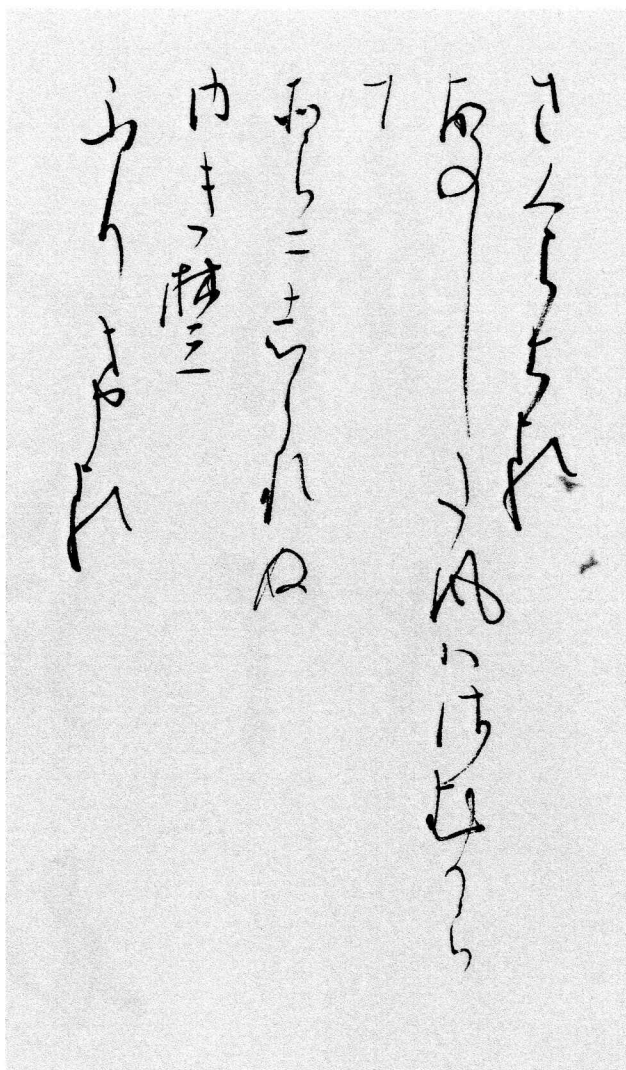 さくらちる
このした風はさむから
て
そらにしられぬ
ふりける